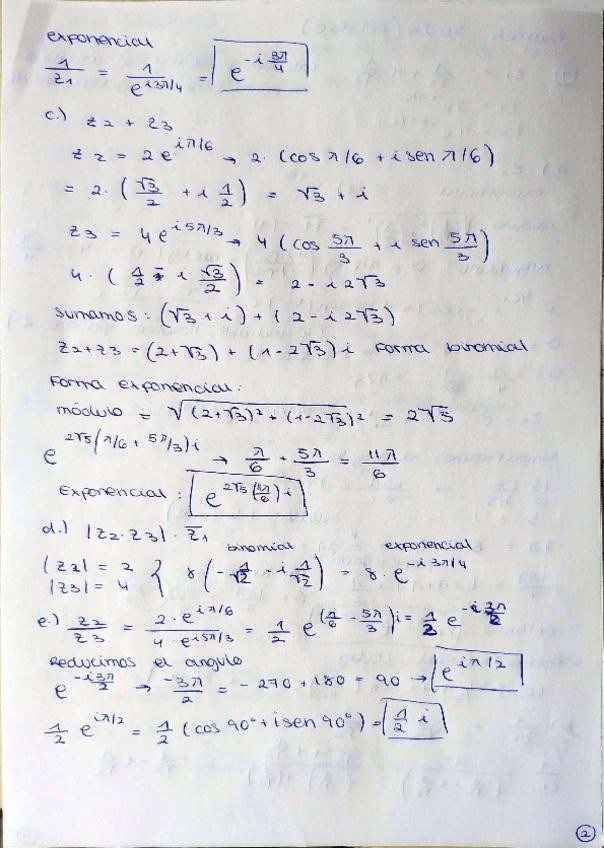 exponencial
1/z1 = 1/e^(i3π/4) = e^(-i 3π/4)
c.) z2 + z3
z2 = 2e^(iπ/6) → 2·(cos π/6 + i sen π/6)
= 2·(√3/2 + i 1/2) = √3 + i
z3 = 4e^(i5π/3) → 4(cos 5π/3 + i sen 5π/3)
4·(1/2 - i √3/2) = 2 - i 2√3
sumamos: (√3 + i) + (2 - i 2√3)
z2+z3 = (2+√3) + (1-2√3)i forma binomial
Forma exponencial:
módulo = √((2+√3)² + (1-2√3)²) = 2√5
e^(2√5(π/6 + 5π/3)i) → π/6 + 5π/3 = 11π/6
Exponencial: e^(2√5(11π/6)i)
d.) |z2·z3|·z̅1
binomial exponencial
|z2| = 2
|z3| = 4 } 8(-1/√2 - i 1/√2) = 8·e^(-i3π/4)
e.) z2/z3 = 2·e^(iπ/6)/4·e^(i5π/3) = 1/2 e^((π/6 - 5π/3)i) = 1/2 e^(-i 3π/2)
Reducimos el angulo
e^(-i3π/2) → -3π/2 = -270 + 180 = 90 → e^(iπ/2)
1/2 e^(iπ/2) = 1/2 (cos 90° + i sen 90°) = 1/2 i
2